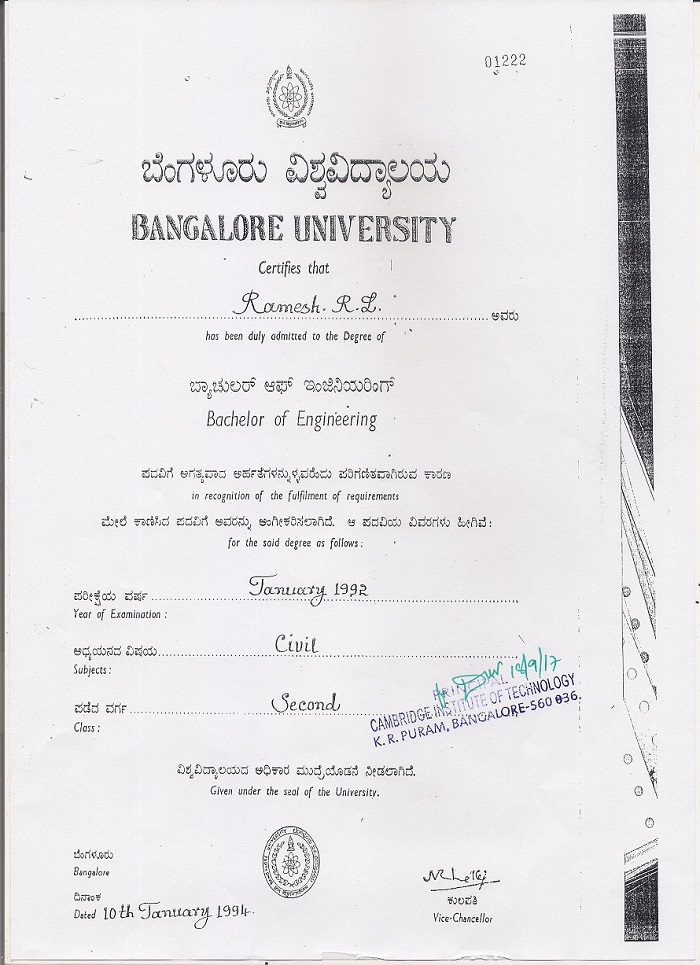 01222
ಬೆಂಗಳೂರು ವಿಶ್ವವಿದ್ಯಾಲಯ
BANGALORE UNIVERSITY
Certifies that
Ramesh. R.L. ಅವರು
has been duly admitted to the Degree of
ಬ್ಯಾಚುಲರ್ ಆಫ್ ಇಂಜಿನಿಯರಿಂಗ್
Bachelor of Engineering
ಪದವಿಗೆ ಅಗತ್ಯವಾದ ಅರ್ಹತೆಗಳನ್ನುಳ್ಳವರೆಂದು ಪರಿಗಣಿತವಾಗಿರುವ ಕಾರಣ
in recognition of the fulfilment of requirements
ಮೇಲೆ ಕಾಣಿಸಿದ ಪದವಿಗೆ ಅವರನ್ನು ಅಂಗೀಕರಿಸಲಾಗಿದೆ. ಆ ಪದವಿಯ ವಿವರಗಳು ಹೀಗಿವೆ:
for the said degree as follows:
ಪರೀಕ್ಷೆಯ ವರ್ಷ January 1992
Year of Examination:
ಅಧ್ಯಯನದ ವಿಷಯ Civil
Subjects:
18/9/17
PRINCIPAL
CAMBRIDGE INSTITUTE OF TECHNOLOGY
K.R. PURAM, BANGALORE-560 036.
ಪಡೆದ ವರ್ಗ Second
Class:
ವಿಶ್ವವಿದ್ಯಾಲಯದ ಅಧಿಕಾರ ಮುದ್ರೆಯೊಡನೆ ನೀಡಲಾಗಿದೆ.
Given under the seal of the University.
ಬೆಂಗಳೂರು
Bangalore
ದಿನಾಂಕ
Dated 10th January 1994.
ಕುಲಪತಿ
Vice-Chancellor